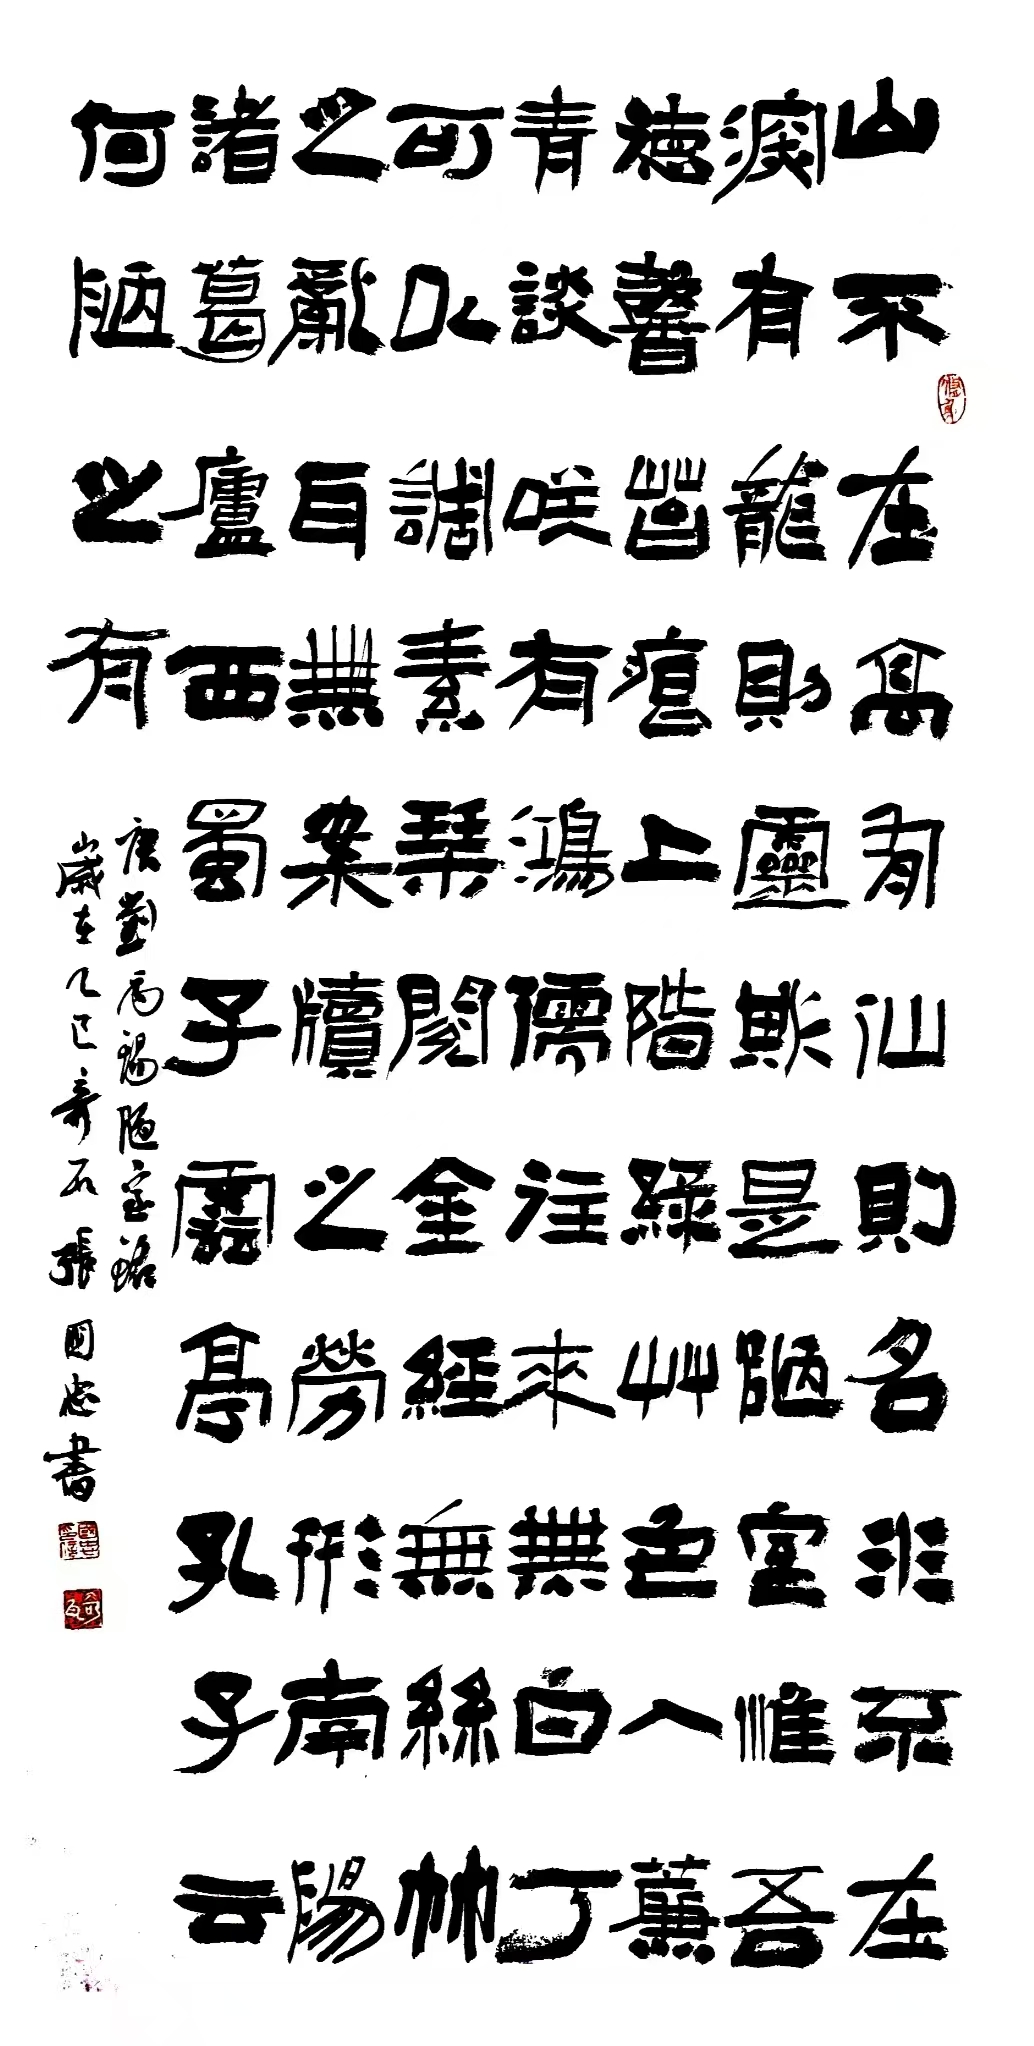 山不在高有仙則名水不在
深有龍則靈斯是陋室惟吾
德馨苔痕上階綠艸色入簾
青談咲有鴻儒往來無白丁
可以調素琴閱金經無絲竹
之亂耳無案牘之勞形南陽
諸葛廬西蜀子雲亭孔子云
何陋之有
唐劉禹錫陋室銘
歲在乙巳奇石張國忠書